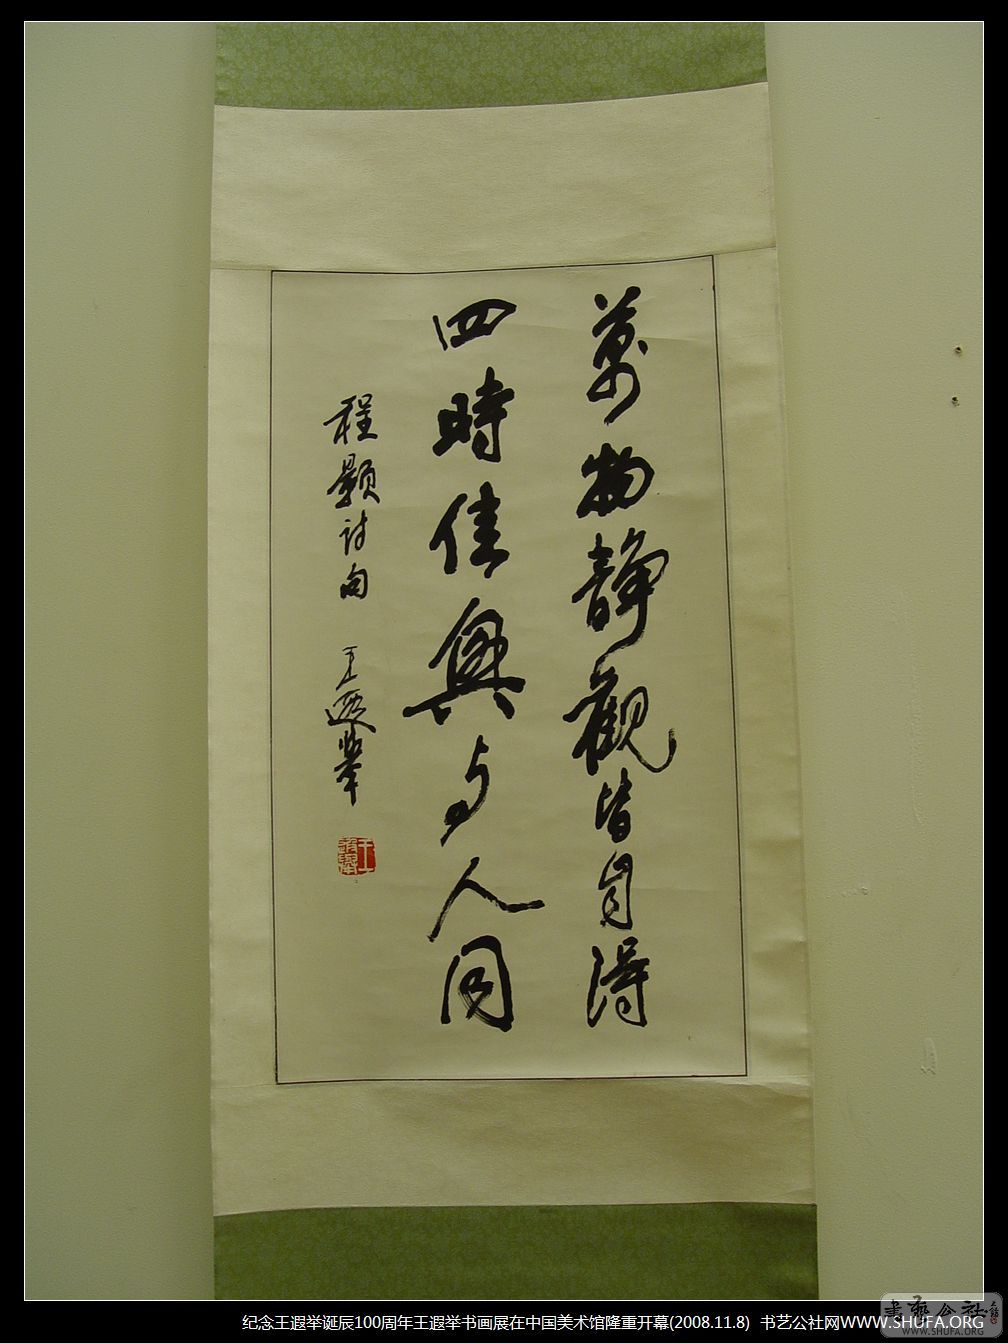 萬物靜觀皆自得
四時佳興与人同
程顥诗句 王遐舉
王遐舉
纪念王遐举诞辰100周年王遐举书画展在中国美术馆隆重开幕(2008.11.8) 书艺公社网WWW.SHUFA.ORG
書艺公社
WWW.SHUFA.ORG